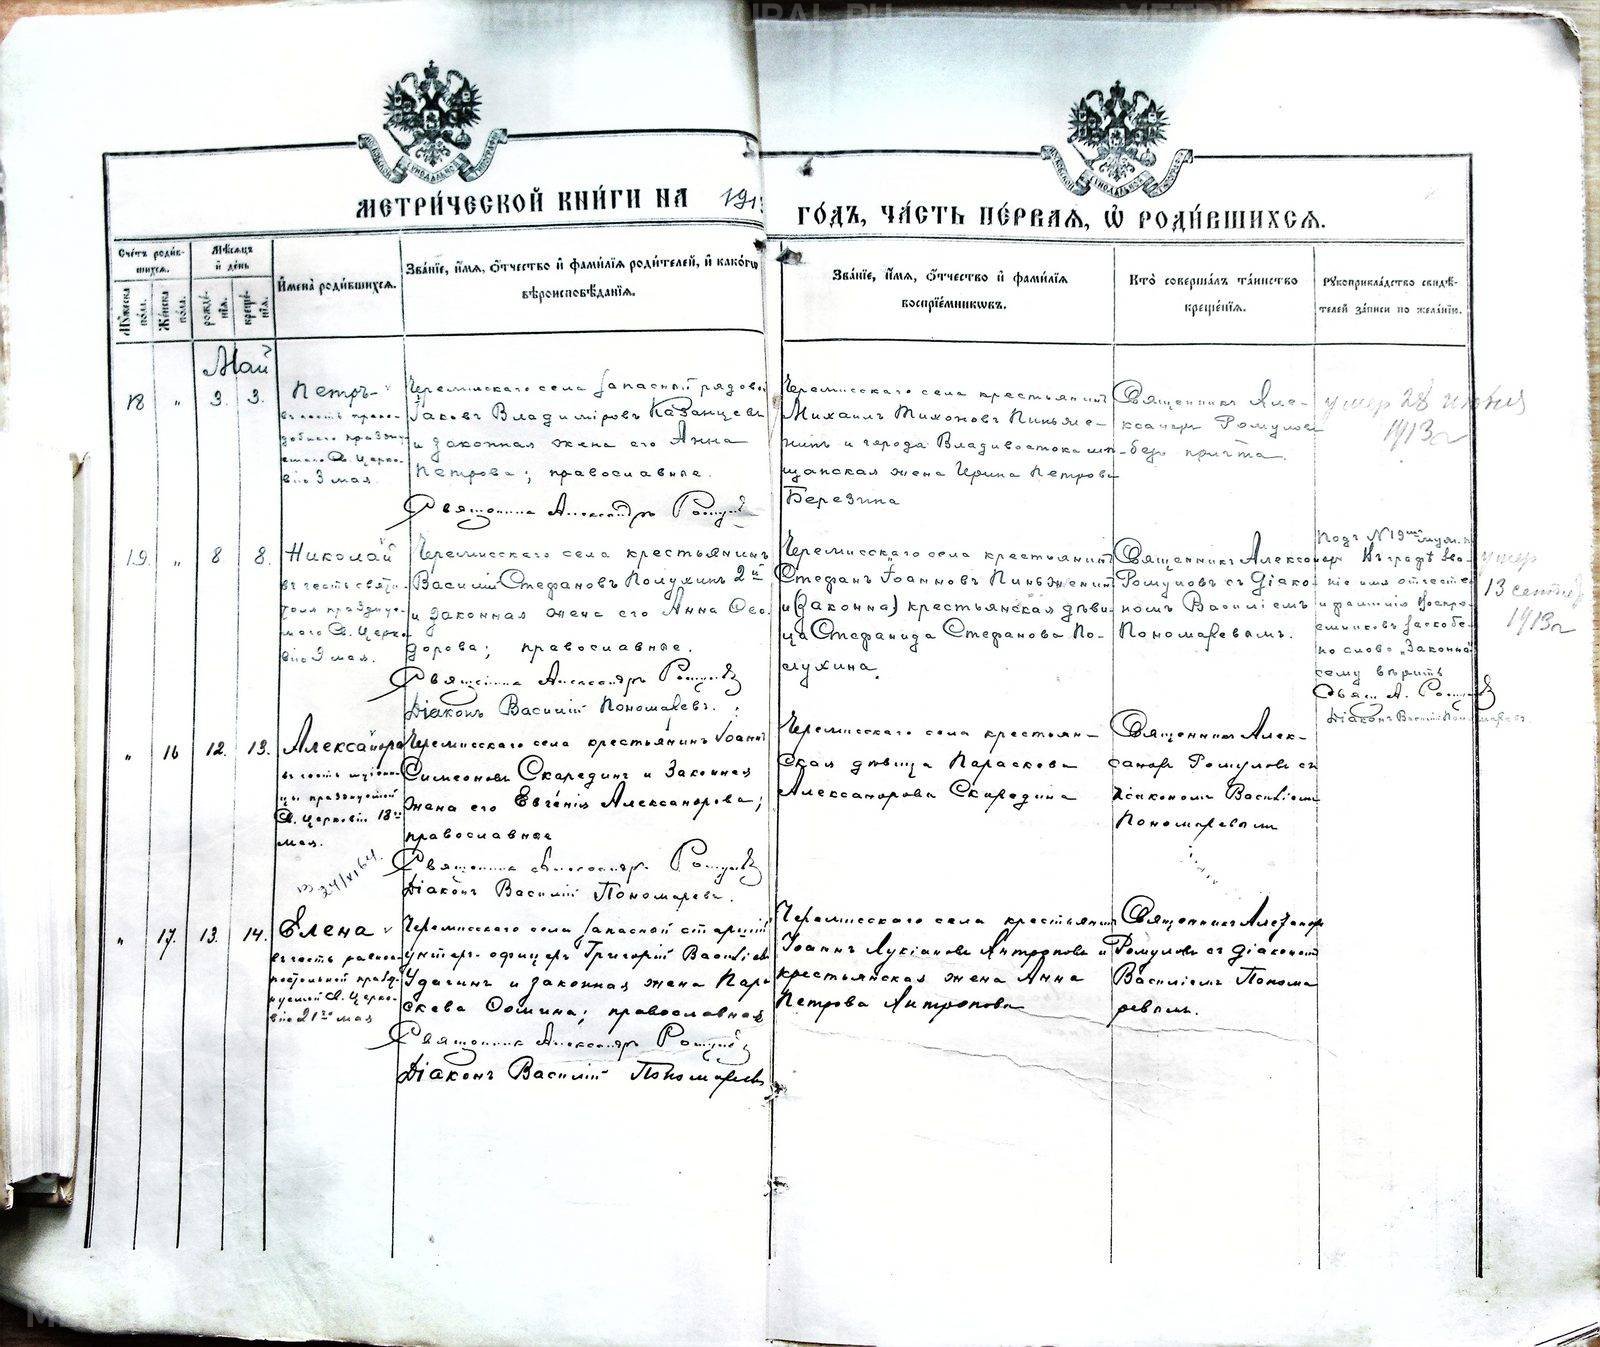 МЕТРИ́ЧЕСКОЙ КНИ́ГИ НА 1913
ГО́ДЪ, ЧА́СТЬ ПЕ́РВАѦ, Ѡ҆ РОДИ́ВШИХСѦ.
Сче́тъ роди́в-
шихсѧ.
Мѣ́сѧцъ
и҆ де́нь
Мꙋ́жеска по́ла.
Же́нска по́ла.
рожде́-
нїѧ.
креще́-
нїѧ.
И҆мена̀ роди́вшихсѧ.
Зва́нїе, и҆́мѧ, ѻ҆́тчество и҆ фами́лїѧ роди́телей, и҆ како́гѡ
вѣроисповѣ́данїѧ.
Зва́нїе, и҆́мѧ, ѻ҆́тчество и҆ фами́лїѧ
воспрїе́мникѡвъ.
Кто̀ соверша́лъ та́инство
креще́нїѧ.
Рꙋкоприкла́дство свидѣ́-
телей за́писи по жела́нїю.
Май
18 " 3. 3.
Петръ
въ честь препо-
добнаго праздну-
емаго Св. Церко-
вію 3 мая.
Черемисскаго села запасный рядовой
Іаковъ Владиміровъ Казанцевъ
и законная жена его Анна
Петрова; православные.
Священникъ Александръ Ромуловъ
Черемисскаго села крестьянинъ
Михаилъ Тихоновъ Пиньже-
нинъ и города Владивостока мѣ-
щанская жена Ирина Петрова
Березина
Священникъ Але-
ксандръ Ромуловъ
безъ причта.
умер 28 июня
1913г
19. " 8 8.
Николай
въ честь святи-
теля праздну-
маго Св. Церко-
вію 9 мая.
Черемисскаго села крестьянинъ
Василій Стефановъ Полухинъ 2й
и законная жена его Анна Ѳео-
дорова; православные.
Священникъ Александръ Ромуловъ
Діаконъ Василій Пономаревъ.
Черемисскаго села крестьянинъ
Стефанъ Іоанновъ Пиньженинъ
и (законна) крестьянская дѣви-
ца Стефанида Стефанова По-
лухина.
Священникъ Александръ
Ромуловъ съ діако-
номъ Василіемъ
Пономаревымъ.
Подъ №19мъ муж. п.
въ графѣ зва-
ніе имя отчество
и фамилія воспрі-
емниковъ заскобле-
но слово „Законна"
сему вѣрить
Свящ. А. Ромуловъ
Діаконъ Василій Пономаревъ.
умер
13 сентяб
1913г
" 16 12. 13.
Александра
въ честь мучени-
цы празднуемой
Св. Церковію 18го
мая.
24/VI 64.
Черемисскаго села крестьянинъ Іоаннъ
Симеоновъ Скарединъ и законная
жена его Евгенія Александрова;
православные
Священникъ Александръ Ромуловъ
Діаконъ Василій Пономаревъ.
Черемисскаго села крестьян-
ская дѣвица Параскева
Александрова Скаредина
Священникъ Алек-
сандръ Ромуловъ съ
діакономъ Василіемъ
Пономаревымъ
" 17. 13. 14.
Елена
въ честь равно-
апостольной праздн-
уемой Св. Церко-
вію 21го мая
Черемисскаго села запасной старшій
унтеръ-офицеръ Григорій Васильевъ
Удагинъ и законная жена Пара-
скева Ѳомина; православная
Священникъ Александръ Ромуловъ
Діаконъ Василій Пономаревъ
Черемисскаго села крестьянинъ
Іоаннъ Лукіановъ Антроповъ и
крестьянская жена Анна
Петрова Антропова
Священникъ Александръ
Ромуловъ съ діакономъ
Василіемъ Понома
ревымъ.